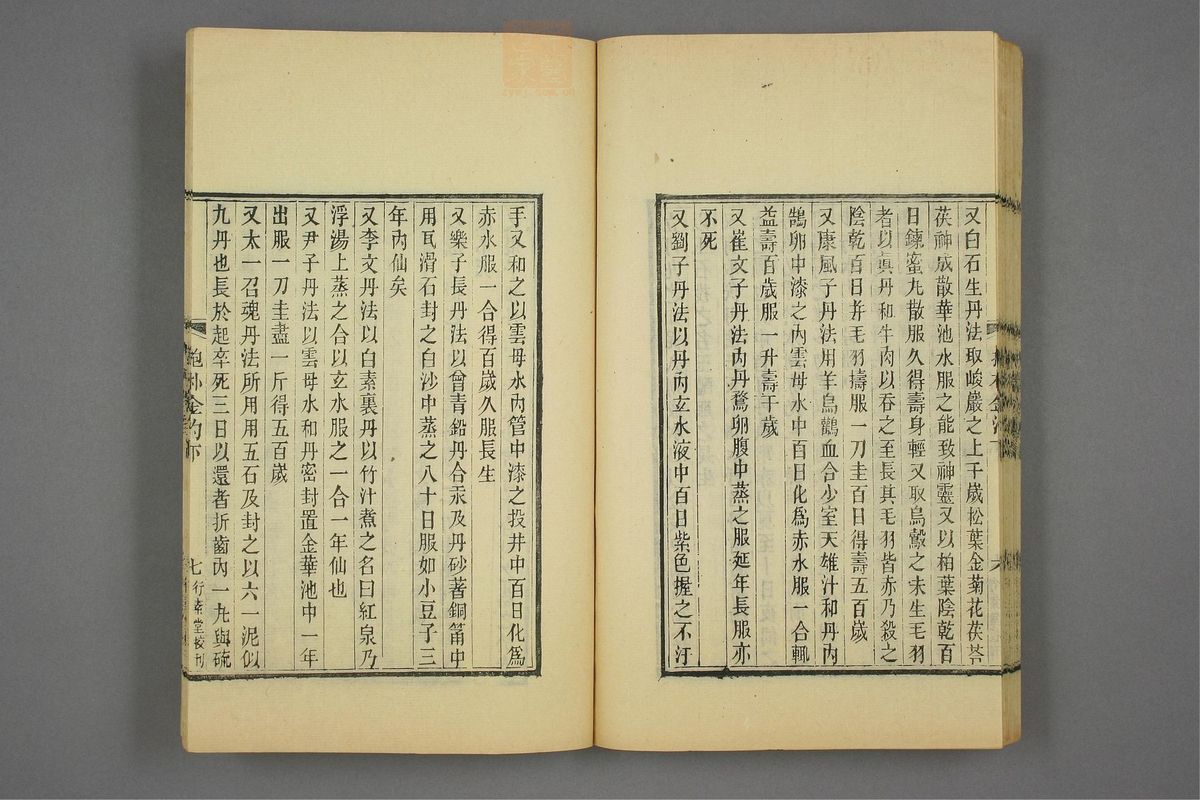 又白石生丹法取峻巖之上千歲松葉金菊花茯苓
茯神成散華池水服之能致神靈又以柏葉陰乾百
日鍊蜜丸散服久得壽身輕又取烏鷇之未生毛羽
者以真丹和牛肉以吞之至長其毛羽皆赤乃殺之
陰乾百日并毛羽擣服一刀圭百日得壽五百歲
又康風子丹法用羊烏鶴血合少室天雄汁和丹內
鵠卵中漆之內雲母水中百日化為赤水服一合輒
益壽百歲服一升壽千歲
又崔文子丹法內丹鶩卵腹中蒸之服延年長服亦
不死
又劉子丹法以丹內玄水液中百日紫色握之不汙
手又和之以雲母水內管中漆之投井中百日化為
赤水服一合得百歲久服長生
又樂子長丹法以曾青鉛丹合汞及丹砂著銅筩中
用瓦滑石封之白沙中蒸之八十日服如小豆子三
年內仙矣
又李文丹法以白素裹丹以竹汁煮之名曰紅泉乃
浮湯上蒸之合以玄水服之一合一年仙也
又尹子丹法以雲母水和丹密封置金華池中一年
出服一刀圭盡一斤得五百歲
又太一召魂丹法所用用五石及封之以六一泥似
九丹也長於起卒死三日以還者折齒內一丸與硫
抱朴金汋下
七
行素堂校刊